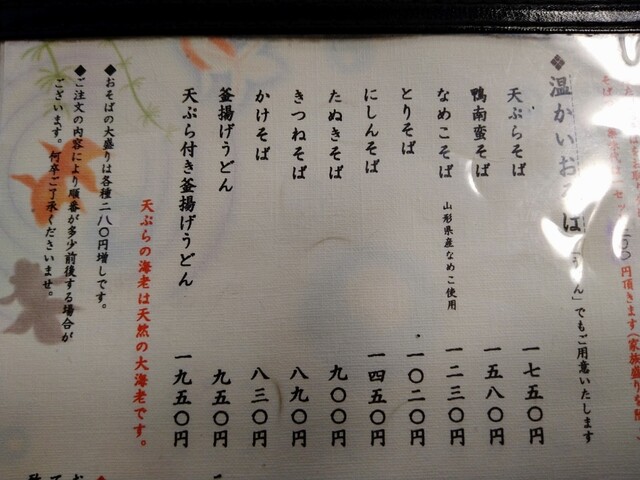 円頂きます(家族盛りを除
◆温かいおそば「うどん」でもご用意いたします
天ぷらそば 一七五〇円
鴨南蛮そば 一五八〇円
なめこそば 山形県産なめこ使用 一二三〇円
とりそば 一〇二〇円
にしんそば 一四五〇円
たぬきそば 九〇〇円
きつねそば 八九〇円
かけそば 八三〇円
釜揚げうどん 九五〇円
天ぷら付き釜揚げうどん 一九五〇円
天ぷらの海老は天然の大海老です。
◆おそばの大盛りは各種二八〇円増しです。
◆ご注文の内容により順番が多少前後する場合が
ございます。何卒ご了承くださいませ。